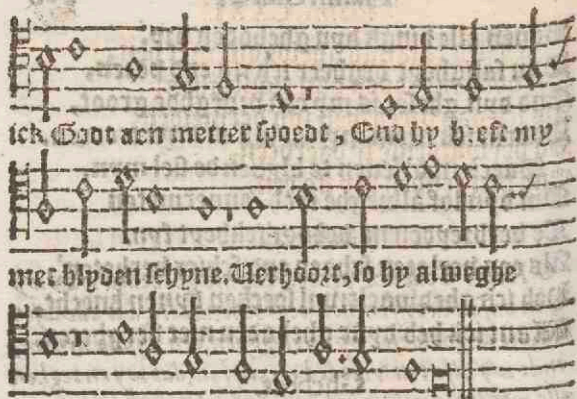 ick Godt aen metter spoedt, End hy heeft my
met blyden schyne. Verhoort, so hy alweghe